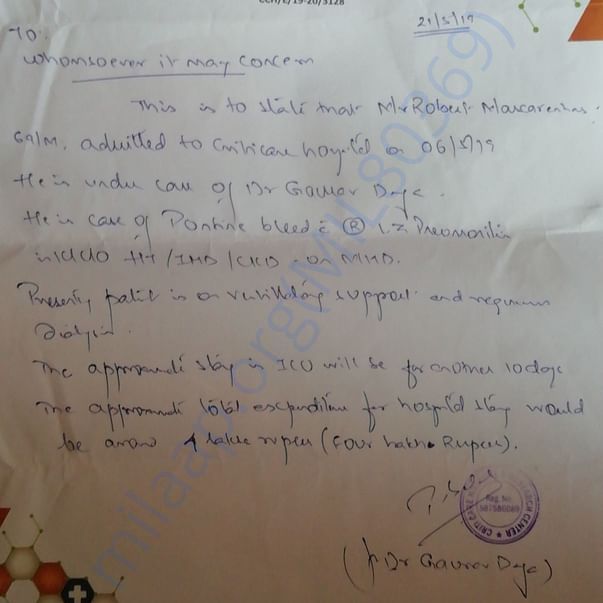 CCH/E/19-20/3128
21/5/19
To.
Whomsoever it may concern
This is to state that Mr Robert Mascarenhas
M. admitted to Criticare hospital on 06/5/19
He is under care of Dr Gaurav
He is case of Pontine bleed c̄ (R) Pneumonitis
HT/IHD/CKD on MHD.
Presently patient is on ventilatory support and requires
Dialysis.
The approximate stay in ICU will be for another 10 days
The approximate total expenditure for hospital stay would
be around 4 lakh rupees (Four lakh Rupees).
Reg. No.
CRITI CARE RESEARCH CENTER
(Dr Gaurav)
milaap.org(MIL80369)